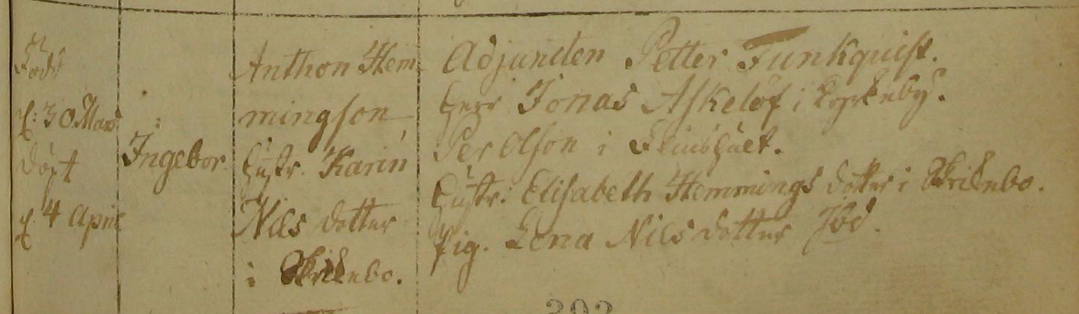 Född
d: 30 Mars
döpt
d 4 April
Ingebor
Anthon Hem-
mingson
hustr. Karin
Nils dotter
i
Adjuncten Petter Funkquist.
Herr Jonas Askelöf i
Per Olson i
hustr: Elisabeth Hemmings dotter i
pig. Lena Nils dotter ibd.